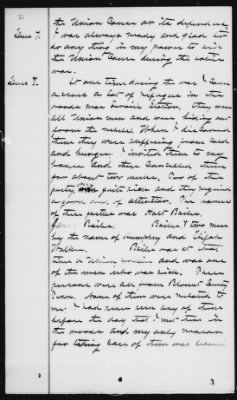 2
the Union Cause or its dependence
Ques 7. I was always ready and glad to
do any thing in my power to aid
the Union Cause during the entire
war.
Ques 8. At one time during the war I came
across a lot of refugees in the
woods near Station. they were
all Union men and were hiding out
from the rebels. When I discovered
them they were suffering from cold
and hunger. I invited them to my
house and there them
for about two weeks. Two of the
party quite sick and they required
a good deal of attention. The names
of these parties was Bailes,
Bailes, Bailes & two men
by the name of and Elijah
Bailes was at that
time a and was one
of the men who was sick. These
persons were all from Blount County
None of them were related to
me. I had never seen any of them
before the day that I met them in
the woods and my only reason
for taking care of them was because
3